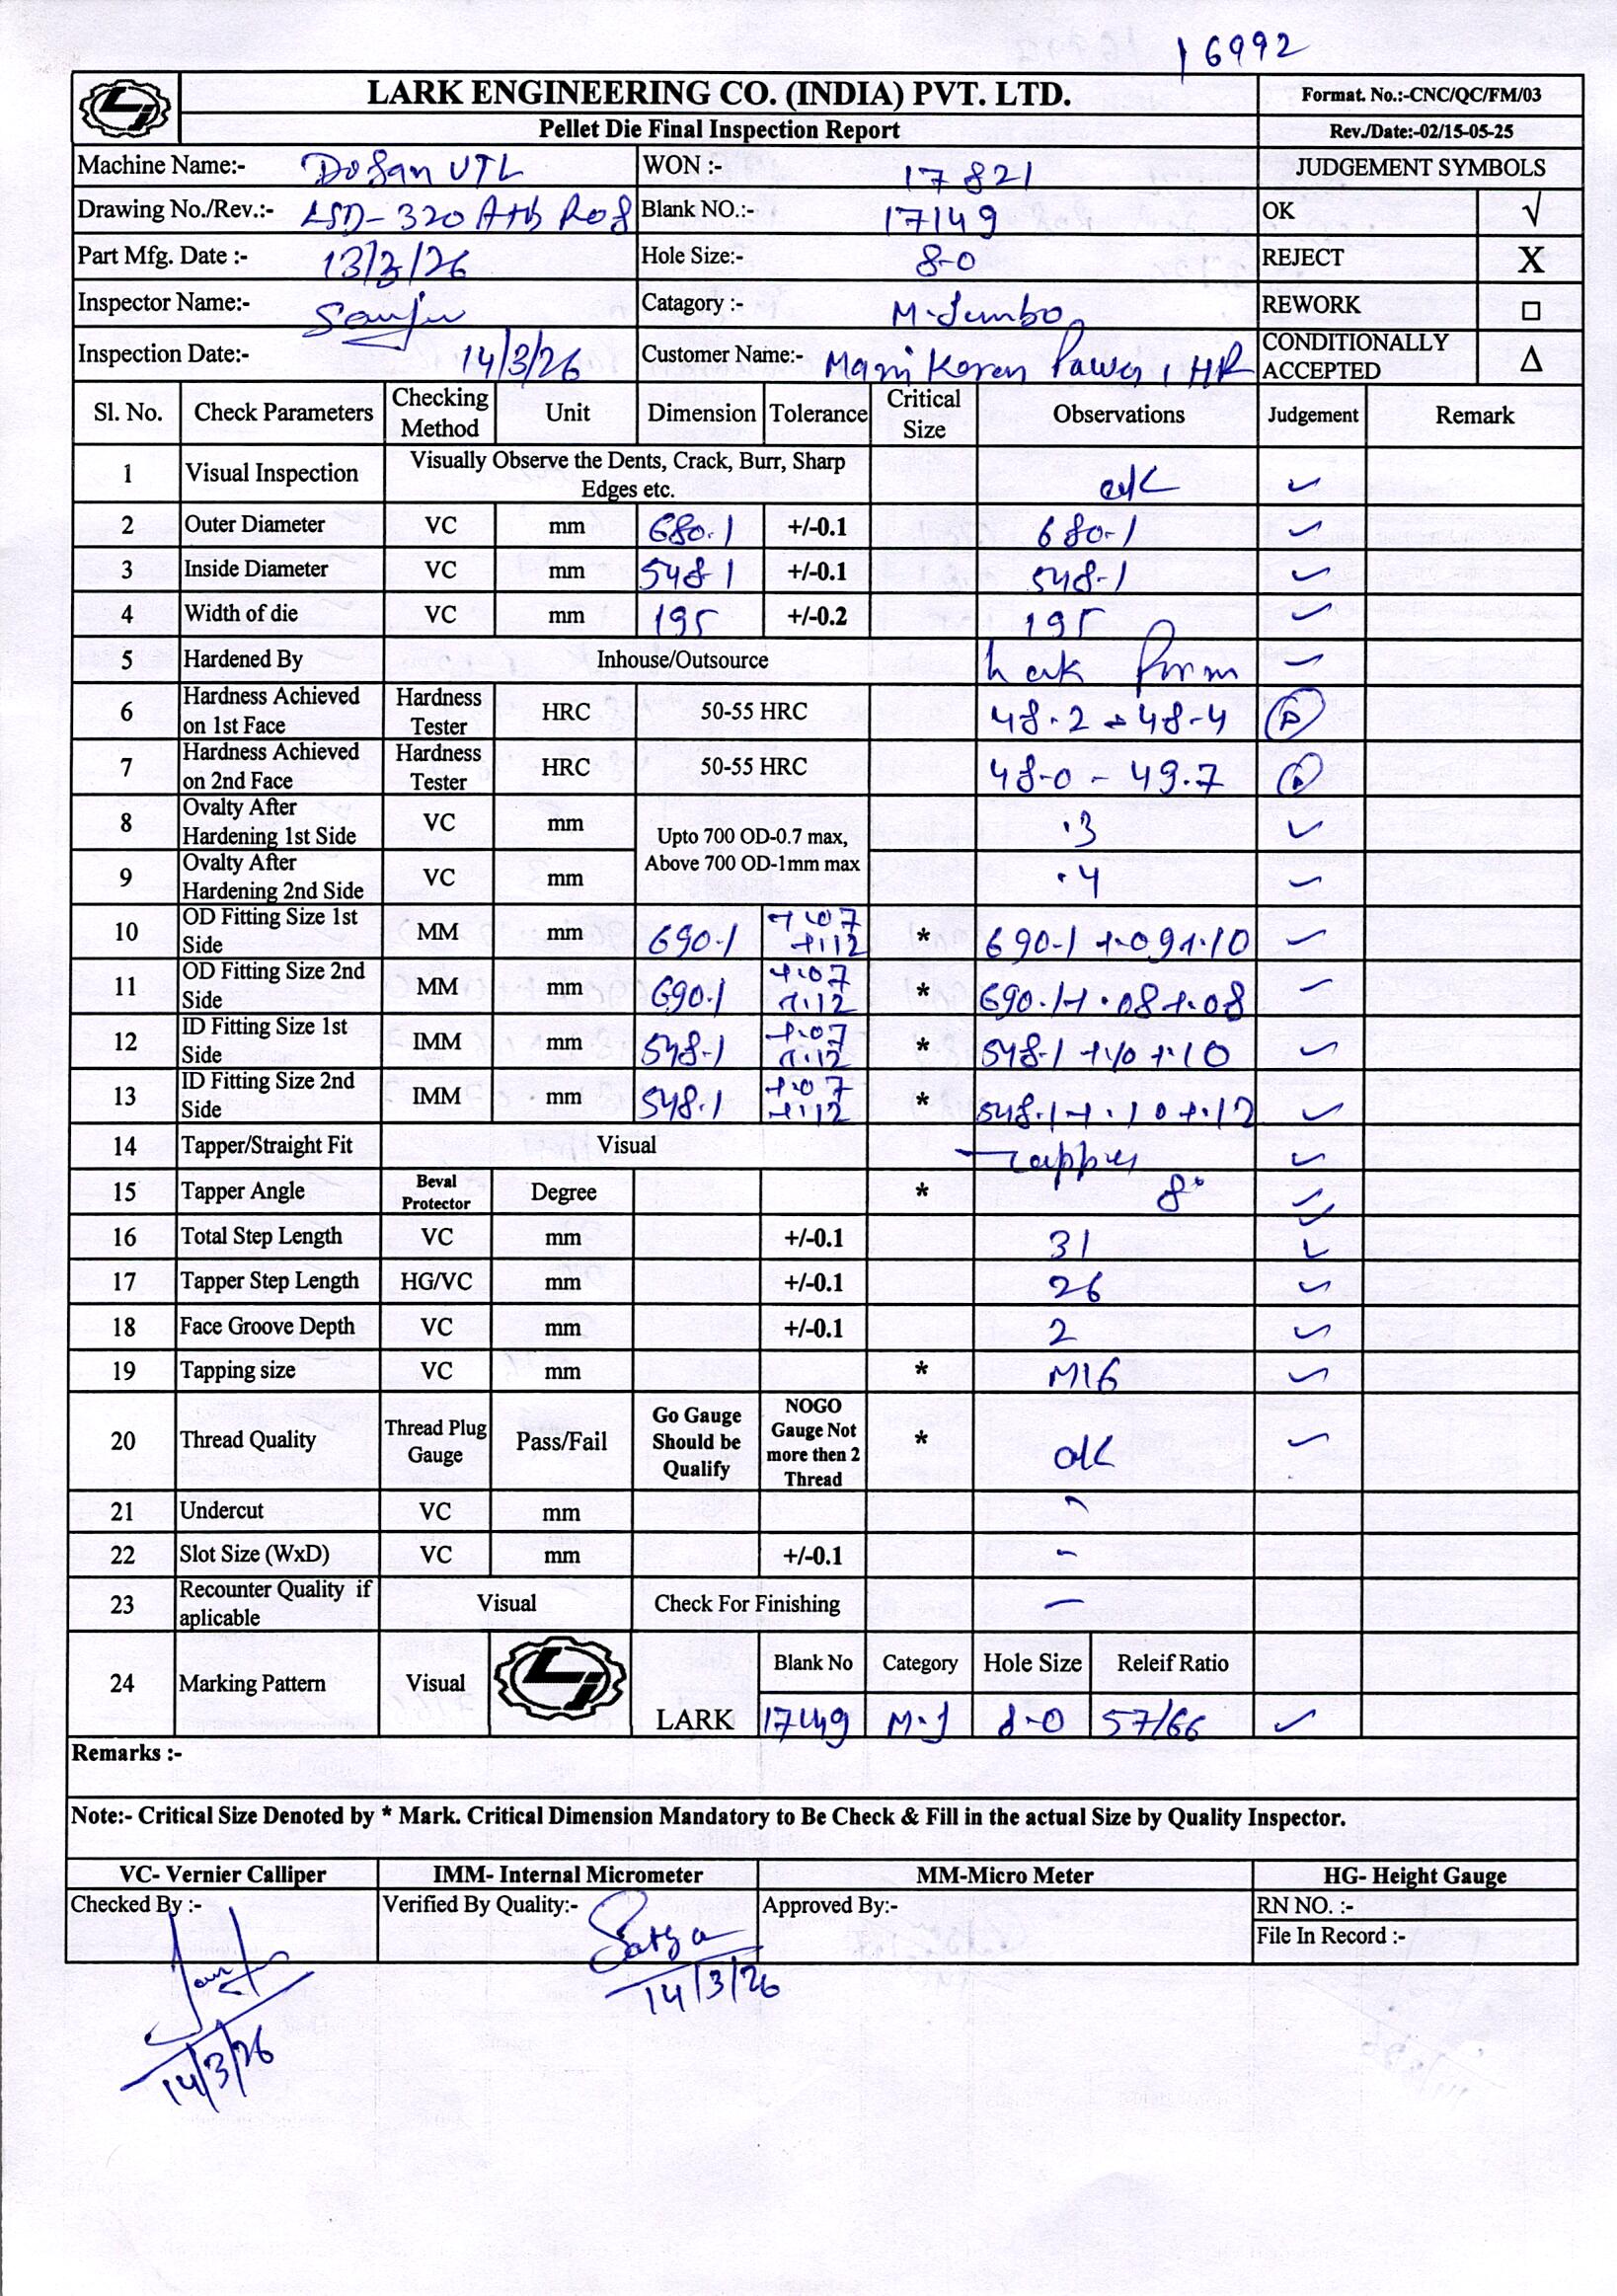 16992
LARK ENGINEERING CO. (INDIA) PVT. LTD.
Format. No.:-CNC/QC/FM/03
Pellet Die Final Inspection Report
Rev./Date:-02/15-05-25
Machine Name:- Dosan VTL WON :- 17821 JUDGEMENT SYMBOLS
Drawing No./Rev.:- LSD-320 R08 Blank NO.:- 17149 OK √
Part Mfg. Date :- 13/3/26 Hole Size:- 8-0 REJECT X
Inspector Name:- Sanju Catagory :- M-Jumbo REWORK □
Inspection Date:- 14/3/26 Customer Name:- Mani Karan Power, HR CONDITIONALLY ACCEPTED Δ
Sl. No. Check Parameters Checking Method Unit Dimension Tolerance Critical Size Observations Judgement Remark
1 Visual Inspection Visually Observe the Dents, Crack, Burr, Sharp Edges etc. ok ✓
2 Outer Diameter VC mm 680.1 +/-0.1 680-1 ✓
3 Inside Diameter VC mm 548-1 +/-0.1 548-1 ✓
4 Width of die VC mm 195 +/-0.2 195 ✓
5 Hardened By Inhouse/Outsource Lark ✓
6 Hardness Achieved on 1st Face Hardness Tester HRC 50-55 HRC 48.2 - 48-4
7 Hardness Achieved on 2nd Face Hardness Tester HRC 50-55 HRC 48-0 - 49.7
8 Ovalty After Hardening 1st Side VC mm Upto 700 OD-0.7 max, Above 700 OD-1mm max .3 ✓
9 Ovalty After Hardening 2nd Side VC mm .4 ✓
10 OD Fitting Size 1st Side MM mm 690-1 +.07 +.12 * 690-1 +.09+.10 ✓
11 OD Fitting Size 2nd Side MM mm 690.1 +.07 +.12 * 690.1+.08+.08 ✓
12 ID Fitting Size 1st Side IMM mm 548-1 +.07 +.12 * 548-1 +.10 +.10 ✓
13 ID Fitting Size 2nd Side IMM mm 548.1 +.07 +.12 * 548.1+.10+.12 ✓
14 Tapper/Straight Fit Visual Tapper ✓
15 Tapper Angle Beval Protector Degree * 8° ✓
16 Total Step Length VC mm +/-0.1 31 ✓
17 Tapper Step Length HG/VC mm +/-0.1 26 ✓
18 Face Groove Depth VC mm +/-0.1 2 ✓
19 Tapping size VC mm * M16 ✓
20 Thread Quality Thread Plug Gauge Pass/Fail Go Gauge Should be Qualify NOGO Gauge Not more then 2 Thread * ok ✓
21 Undercut VC mm -
22 Slot Size (WxD) VC mm +/-0.1 -
23 Recounter Quality if aplicable Visual Check For Finishing -
24 Marking Pattern Visual LARK Blank No Category Hole Size Releif Ratio
17149 M-J 8-0 57/66 ✓
Remarks :-
Note:- Critical Size Denoted by * Mark. Critical Dimension Mandatory to Be Check & Fill in the actual Size by Quality Inspector.
VC- Vernier Calliper IMM- Internal Micrometer MM-Micro Meter HG- Height Gauge
Checked By :- Verified By Quality:- Satya Approved By:- RN NO. :-
File In Record :-
14/3/26
14/3/26